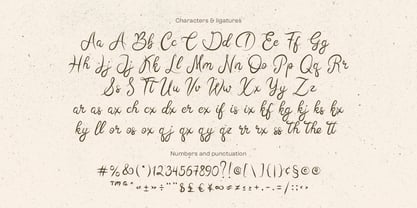 Characters & ligatures
Aa A Bb Cc C Dd D Ee Ff Gg
Hh Jj Jj Kk Ll Mm Nn Oo Pp Qq Rr
Ss S Tt Uu Vv Ww Xx Yy Zz
ar as ax ch cx dx er ex if is ix kf kg kj ks kx
ky ll or os ox qj gx qy qz rr rx ss th the tt
Numbers and punctuation
#%&(*)1234567890?!@[\]{|}¢§©®